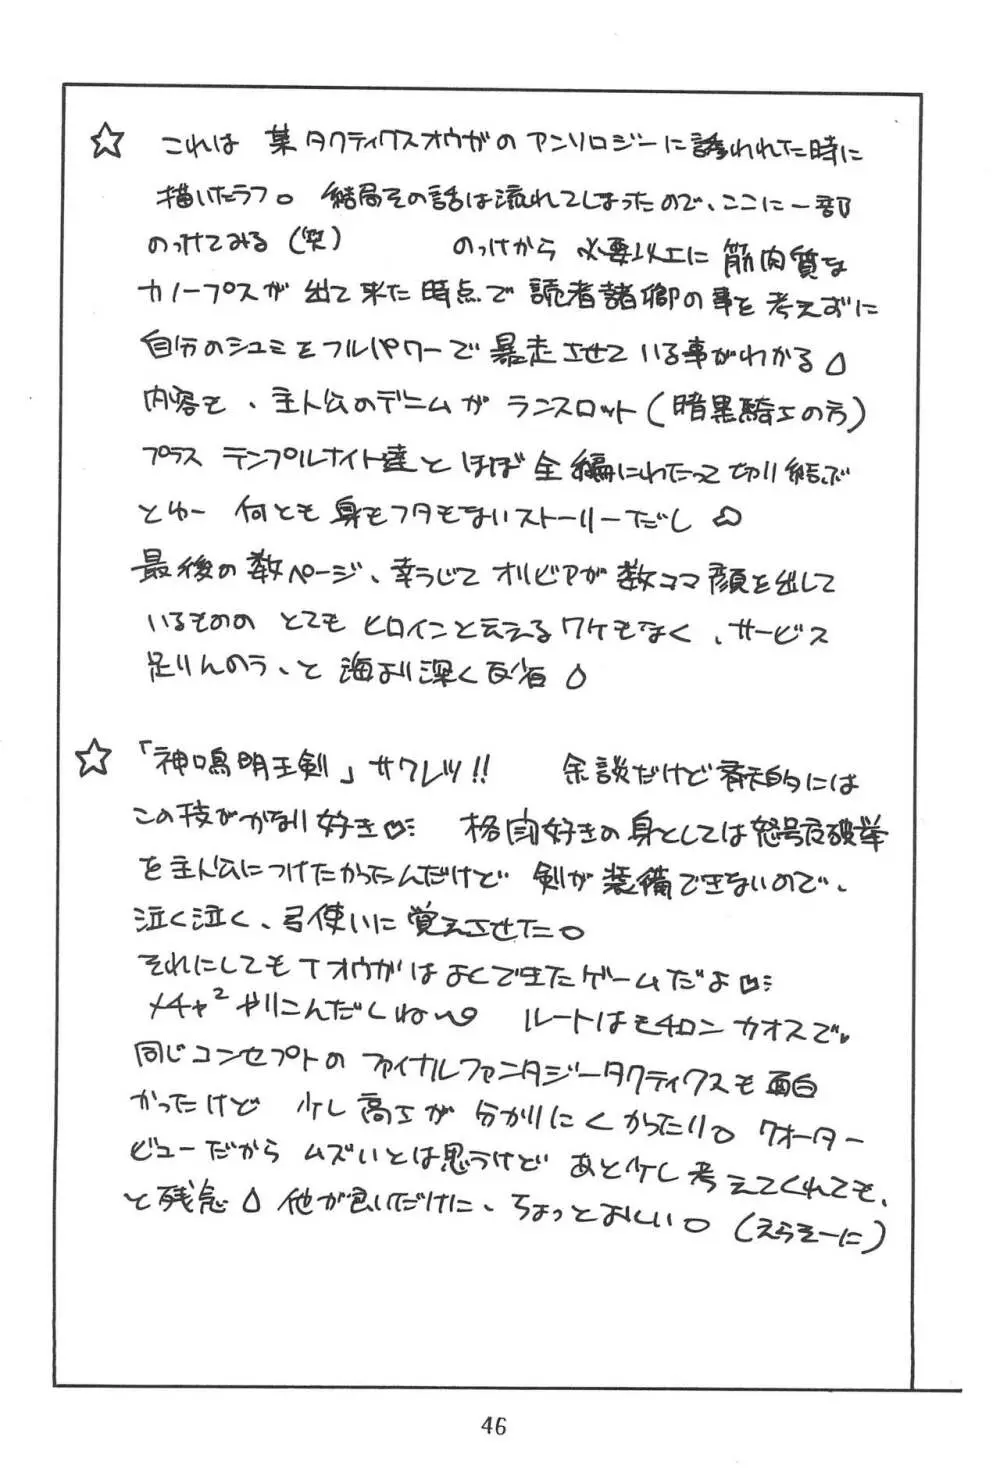 ☆ これは 某タクティクスオウガのアンソロジーに誘われた時に
描いたラフ。 結局その話は流れてしまったので、ここに一部
のっけてみる(笑) のっけから 必要以上に 筋肉質な
カノープスが 出て来た時点で 読者諸卿の事を考えずに
自分のシュミをフルパワーで 暴走させている事がわかる
内容も、主人公のデニムが ランスロット(暗黒騎士の方)
プラス テンプルナイト達と ほぼ全編にわたって切り結ぶ
とゆー 何とも 身もフタもないストーリーだし
最後の数ページ、幸うじて オリビアが 数コマ顔を出して
いるものの とても ヒロインと云えるワケもなく、サービス
足りんのう、と 海より深く反省
☆ 「神鳴明王剣」サクレツ!! 余談だけど 的には
この技がかなり好き 格闘好きの身としては 怒号破撃
を主人公につけたかったんだけど 剣が装備できないので、
泣く泣く、弓使いに 覚えさせた。
それにしてもTオウガは よくできたゲームだよ
メチャ²やりこんだしね〜 ルートはモチロン カオスで
同じコンセプトの ファイナルファンタジータクティクスも 面白
かったけど 少し高さが 分かりにくかったり。 クオーター
ビューだから ムズいとは思うけど あと少し 考えてくれても、
と残念 他が良いだけに、ちょっとおしい。 (えらそーに)
46